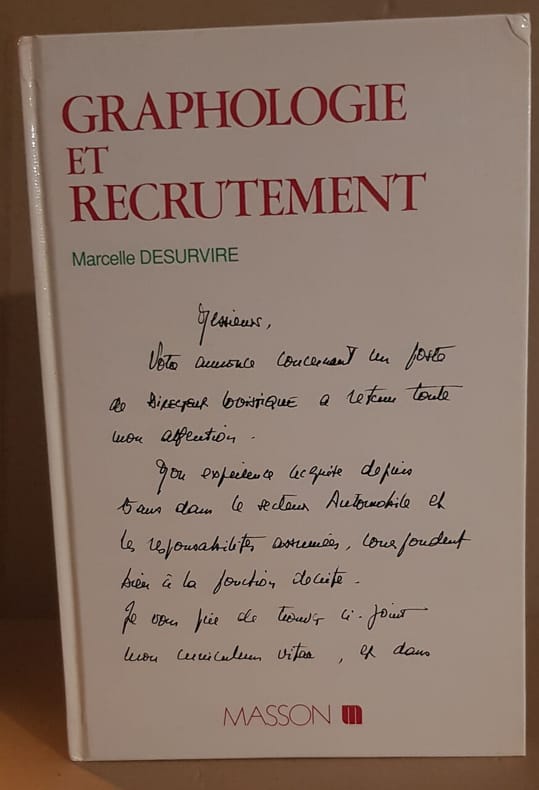 GRAPHOLOGIE
ET
RECRUTEMENT
Marcelle DESURVIRE
Messieurs,
Votre annonce concernant un poste
de DIRECTEUR LOGISTIQUE a retenu toute
mon attention.
Mon expérience acquise depuis
ans dans le secteur Automobile et
les responsabilités assumées, correspondent
bien à la fonction décrite.
Je vous prie de trouver ci-joint
mon curriculum vitae, et dans
MASSON m